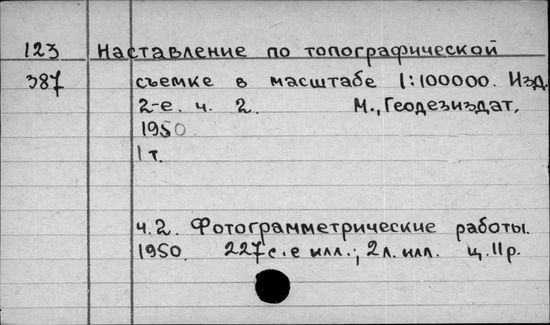 123 Наставление по топографической
387 съемке в масштабе 1:100000. Изд.
2-е. ч. 2. М., Геодезиздат,
1950
1 т.
ч.2. Фотограмметрические работы.
1950. 227 с. с илл.; 2 л. илл. ц. 11 р.